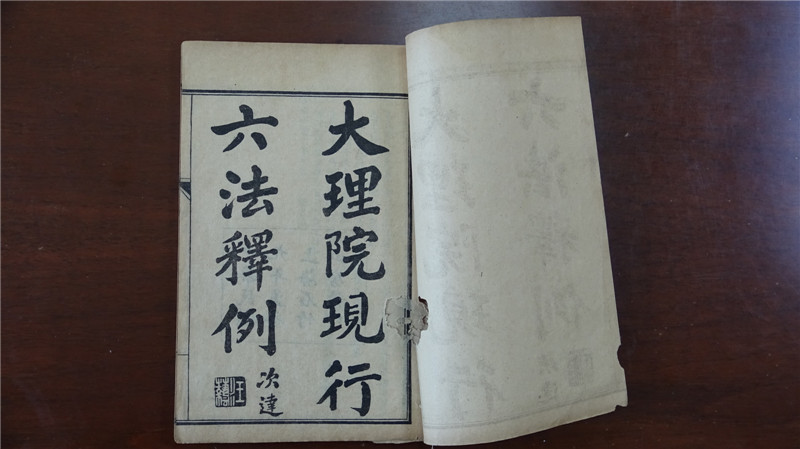 大理院現行
六法釋例
次達
汪